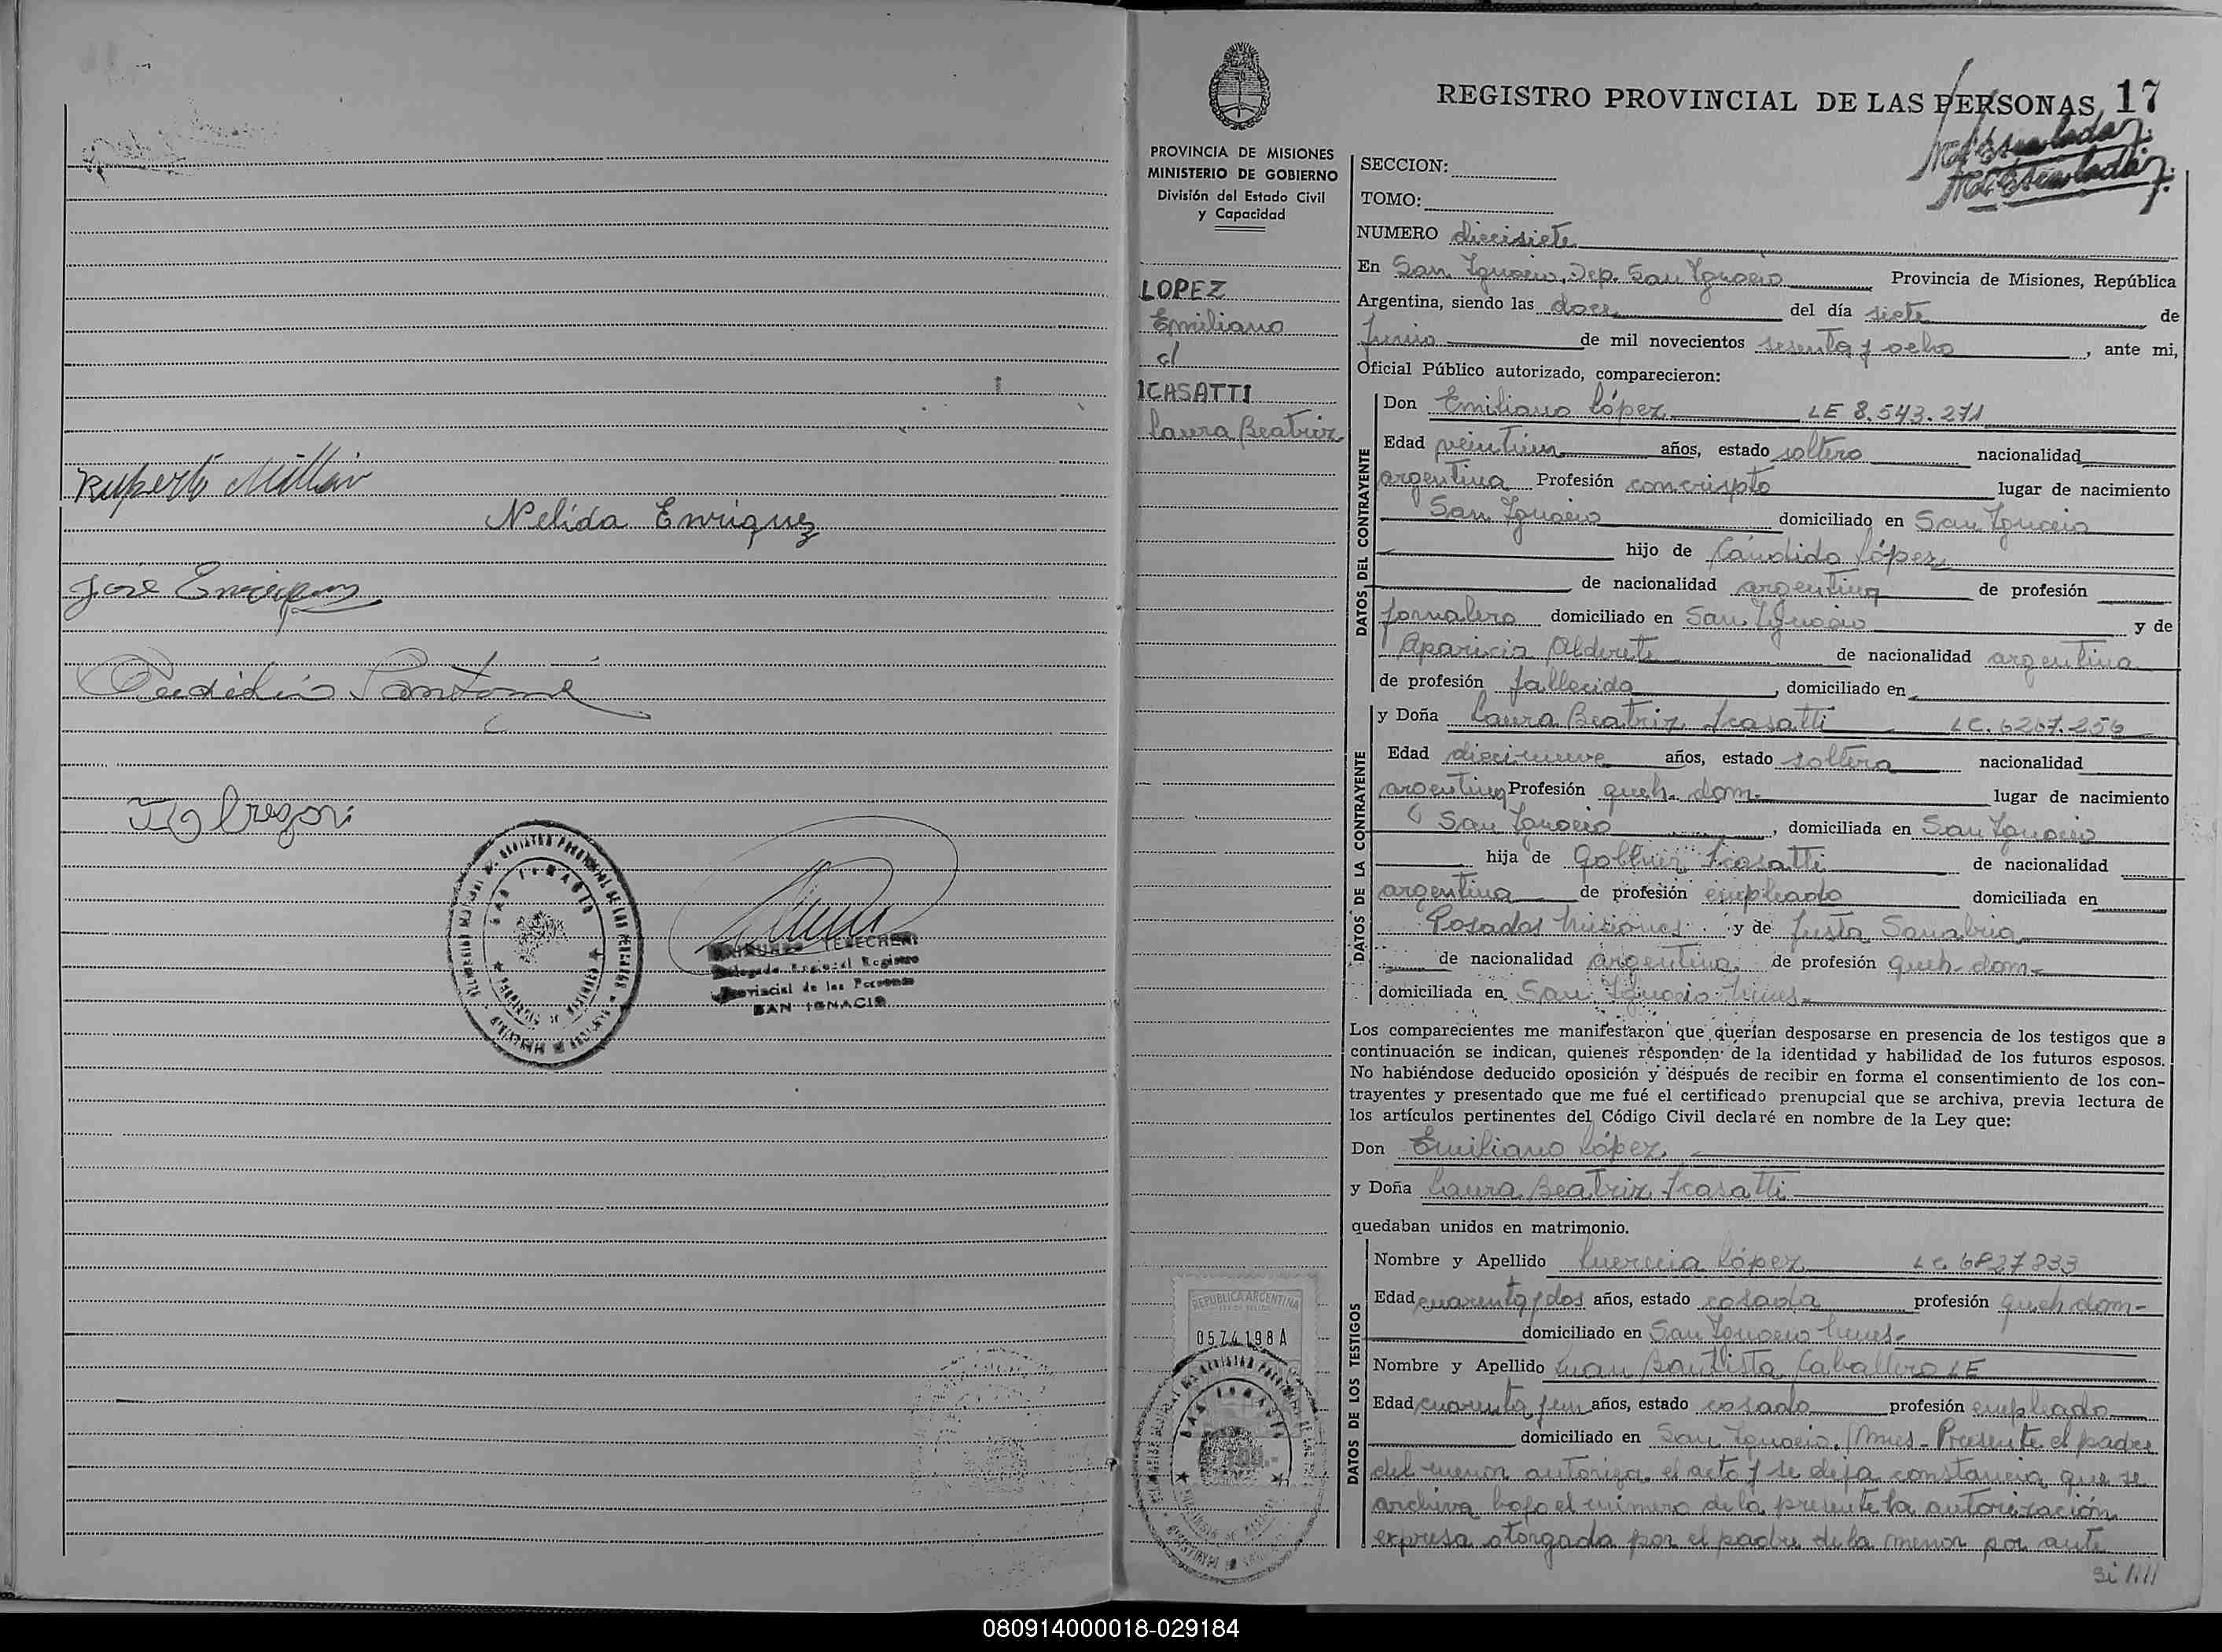 Ruperto Millán
Nelida Enriquez
José Enriquez
T Obregon
DELEGADO Regional Registro
Provincial de las Personas
SAN IGNACIO
REGISTRO PROVINCIAL DE LAS PERSONAS 17
PROVINCIA DE MISIONES
MINISTERIO DE GOBIERNO
División del Estado Civil
y Capacidad
LOPEZ
Emiliano
c/
ICASATTI
Laura Beatriz
SECCION:
TOMO:
NUMERO diecisiete
En San Ignacio, Dep. San Ignacio Provincia de Misiones, República
Argentina, siendo las doce del día siete de
Junio de mil novecientos sesenta y ocho, ante mi,
Oficial Público autorizado, comparecieron:
DATOS DEL CONTRAYENTE
Don Emiliano López LE 8.543.271
Edad veintiun años, estado soltero nacionalidad
argentina Profesión concripto lugar de nacimiento
San Ignacio domiciliado en San Ignacio
hijo de Cándido López
de nacionalidad argentina de profesión
jornalero domiciliado en San Ignacio y de
Aparicia Alderete de nacionalidad argentina
de profesión fallecida, domiciliado en
DATOS DE LA CONTRAYENTE
y Doña Laura Beatriz Icasatti LC. 6267.256
Edad diecinueve años, estado soltera nacionalidad
argentina Profesión queh. dom. lugar de nacimiento
San Ignacio, domiciliada en San Ignacio
hija de Icasatti de nacionalidad
argentina de profesión empleado domiciliada en
Posadas Misiones y de Justa Sanabria
de nacionalidad argentina de profesión queh. dom-
domiciliada en San Ignacio Mnes-
Los comparecientes me manifestaron que querían desposarse en presencia de los testigos que a
continuación se indican, quienes responden de la identidad y habilidad de los futuros esposos.
No habiéndose deducido oposición y después de recibir en forma el consentimiento de los con-
trayentes y presentado que me fué el certificado prenupcial que se archiva, previa lectura de
los artículos pertinentes del Código Civil declaré en nombre de la Ley que:
Don Emiliano López
y Doña Laura Beatriz Icasatti
quedaban unidos en matrimonio.
DATOS DE LOS TESTIGOS
Nombre y Apellido López LC 6827833
Edad cuarenta y dos años, estado casada profesión queh dom-
domiciliado en San Ignacio Mnes-
Nombre y Apellido Juan Bautista Caballero LE
Edad cuarenta y un años, estado casado profesión empleado
domiciliado en San Ignacio, Mnes- Presente el padre
del menor autoriza el acto y se deja constancia que se
archiva bajo el número de la presente la autorización
expresa otorgada por el padre de la menor por ante
REPUBLICA ARGENTINA
0574198A
080914000018-029184